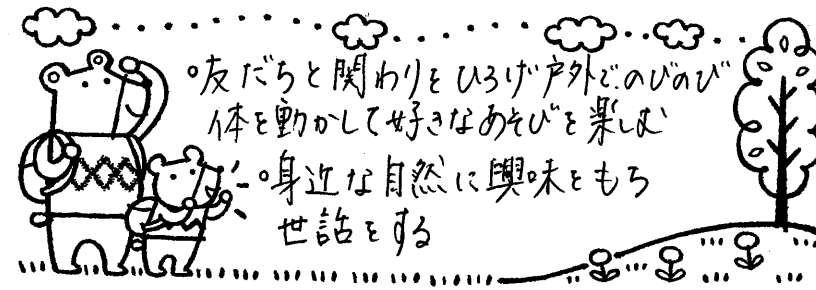 °友だちと関わりをひろげ戸外で、のびのび
体を動かして好きなあそびを楽しむ
°身近な自然に興味をもち
世話をする